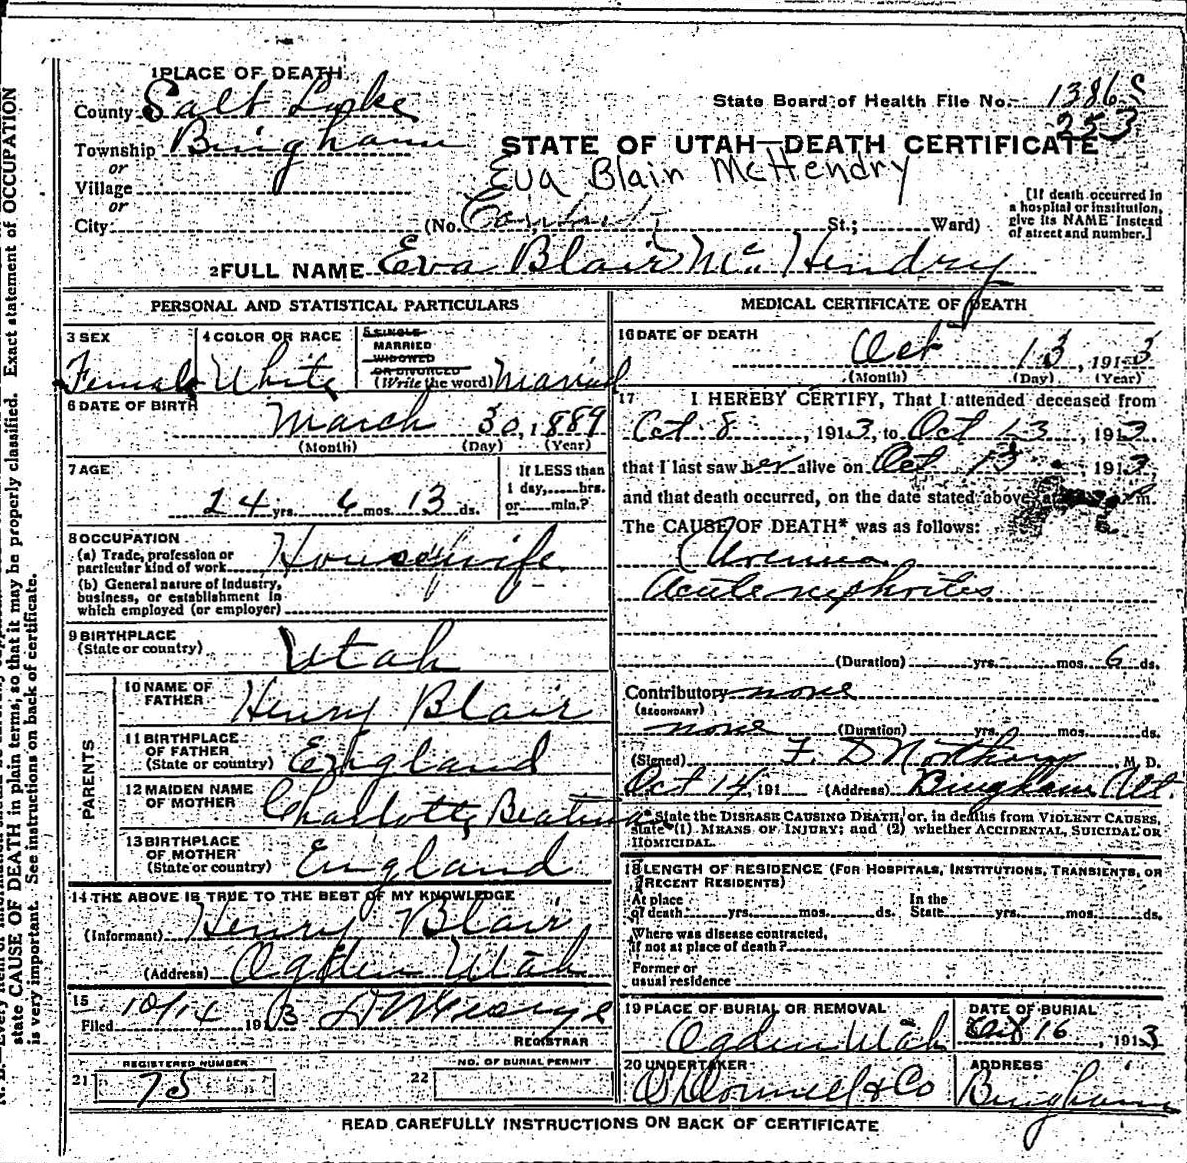 1 PLACE OF DEATH
County Salt Lake
State Board of Health File No. 1386
253
Township Bingham
or
STATE OF UTAH—DEATH CERTIFICATE
Village
Eva Blain McHendry
or
City (No. St.; Ward)
[If death occurred in a hospital or institution, give its NAME instead of street and number.]
2 FULL NAME Eva Blair Mc Hendry
PERSONAL AND STATISTICAL PARTICULARS
3 SEX Female
4 COLOR OR RACE White
5 SINGLE
MARRIED
WIDOWED
OR DIVORCED
(Write the word) Married
6 DATE OF BIRTH
March 30, 1889
(Month) (Day) (Year)
7 AGE
24 yrs. 6 mos. 13 ds.
If LESS than
1 day,......hrs.
or......min.?
8 OCCUPATION
(a) Trade, profession or
particular kind of work Housewife
(b) General nature of Industry,
business, or establishment in
which employed (or employer)
9 BIRTHPLACE
(State or country) Utah
PARENTS
10 NAME OF
FATHER Henry Blair
11 BIRTHPLACE
OF FATHER
(State or country) England
12 MAIDEN NAME
OF MOTHER Charlotte
13 BIRTHPLACE
OF MOTHER
(State or country) England
14 THE ABOVE IS TRUE TO THE BEST OF MY KNOWLEDGE
(Informant) Henry Blair
(Address) Ogden Utah
15
Filed 10/14 1913
REGISTRAR
REGISTERED NUMBER
21 75
NO. OF BURIAL PERMIT
22
MEDICAL CERTIFICATE OF DEATH
16 DATE OF DEATH
Oct 13, 1913
(Month) (Day) (Year)
17 I HEREBY CERTIFY, That I attended deceased from
Oct 8, 1913, to Oct 13, 1913.
that I last saw her alive on Oct 13, 1913
and that death occurred, on the date stated above, at m.
The CAUSE OF DEATH* was as follows:
Uremia
Acute nephrites
(Duration) yrs. mos. 6 ds.
Contributory none
(SECONDARY)
none (Duration) yrs. mos. ds.
(Signed) F. D Northrop, M. D.
Oct 14, 191 (Address) Bingham Ut.
* State the DISEASE CAUSING DEATH, or, in deaths from VIOLENT CAUSES,
state (1) MEANS OF INJURY; and (2) whether ACCIDENTAL, SUICIDAL OR
HOMICIDAL.
18 LENGTH OF RESIDENCE (FOR HOSPITALS, INSTITUTIONS, TRANSIENTS, OR
RECENT RESIDENTS)
At place
of death yrs. mos. ds.
In the
State yrs. mos. ds.
Where was disease contracted,
if not at place of death?
Former or
usual residence
19 PLACE OF BURIAL OR REMOVAL
Ogden Utah
DATE OF BURIAL
Oct 16, 1913
20 UNDERTAKER
O'Donnell & Co
ADDRESS
Bingham
READ CAREFULLY INSTRUCTIONS ON BACK OF CERTIFICATE
state CAUSE OF DEATH in plain terms, so that it may be properly classified. Exact statement of OCCUPATION
is very important. See instructions on back of certificate.